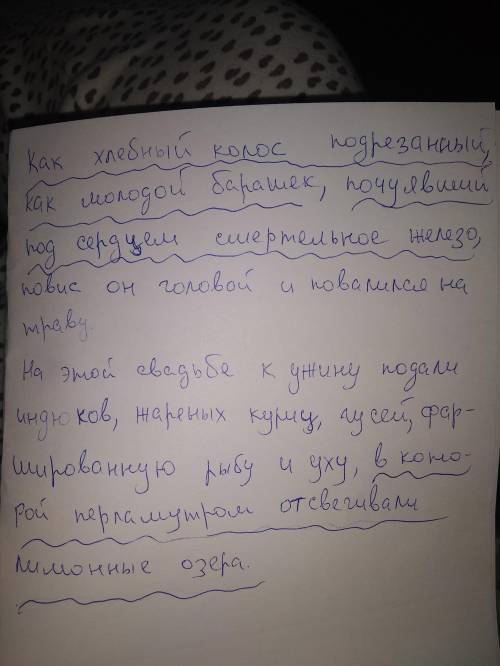 Как хлебный колос подрезанный,
как молодой барашек, почуявший
под сердцем смертельное железо,
повис он головой и повалился на
траву.
На этой свадьбе к ужину подали
индюков, жареных куриц, гусей, фар-
шированную рыбу и уху, в кото-
рой перламутром отсвечивали
лимонные озера.